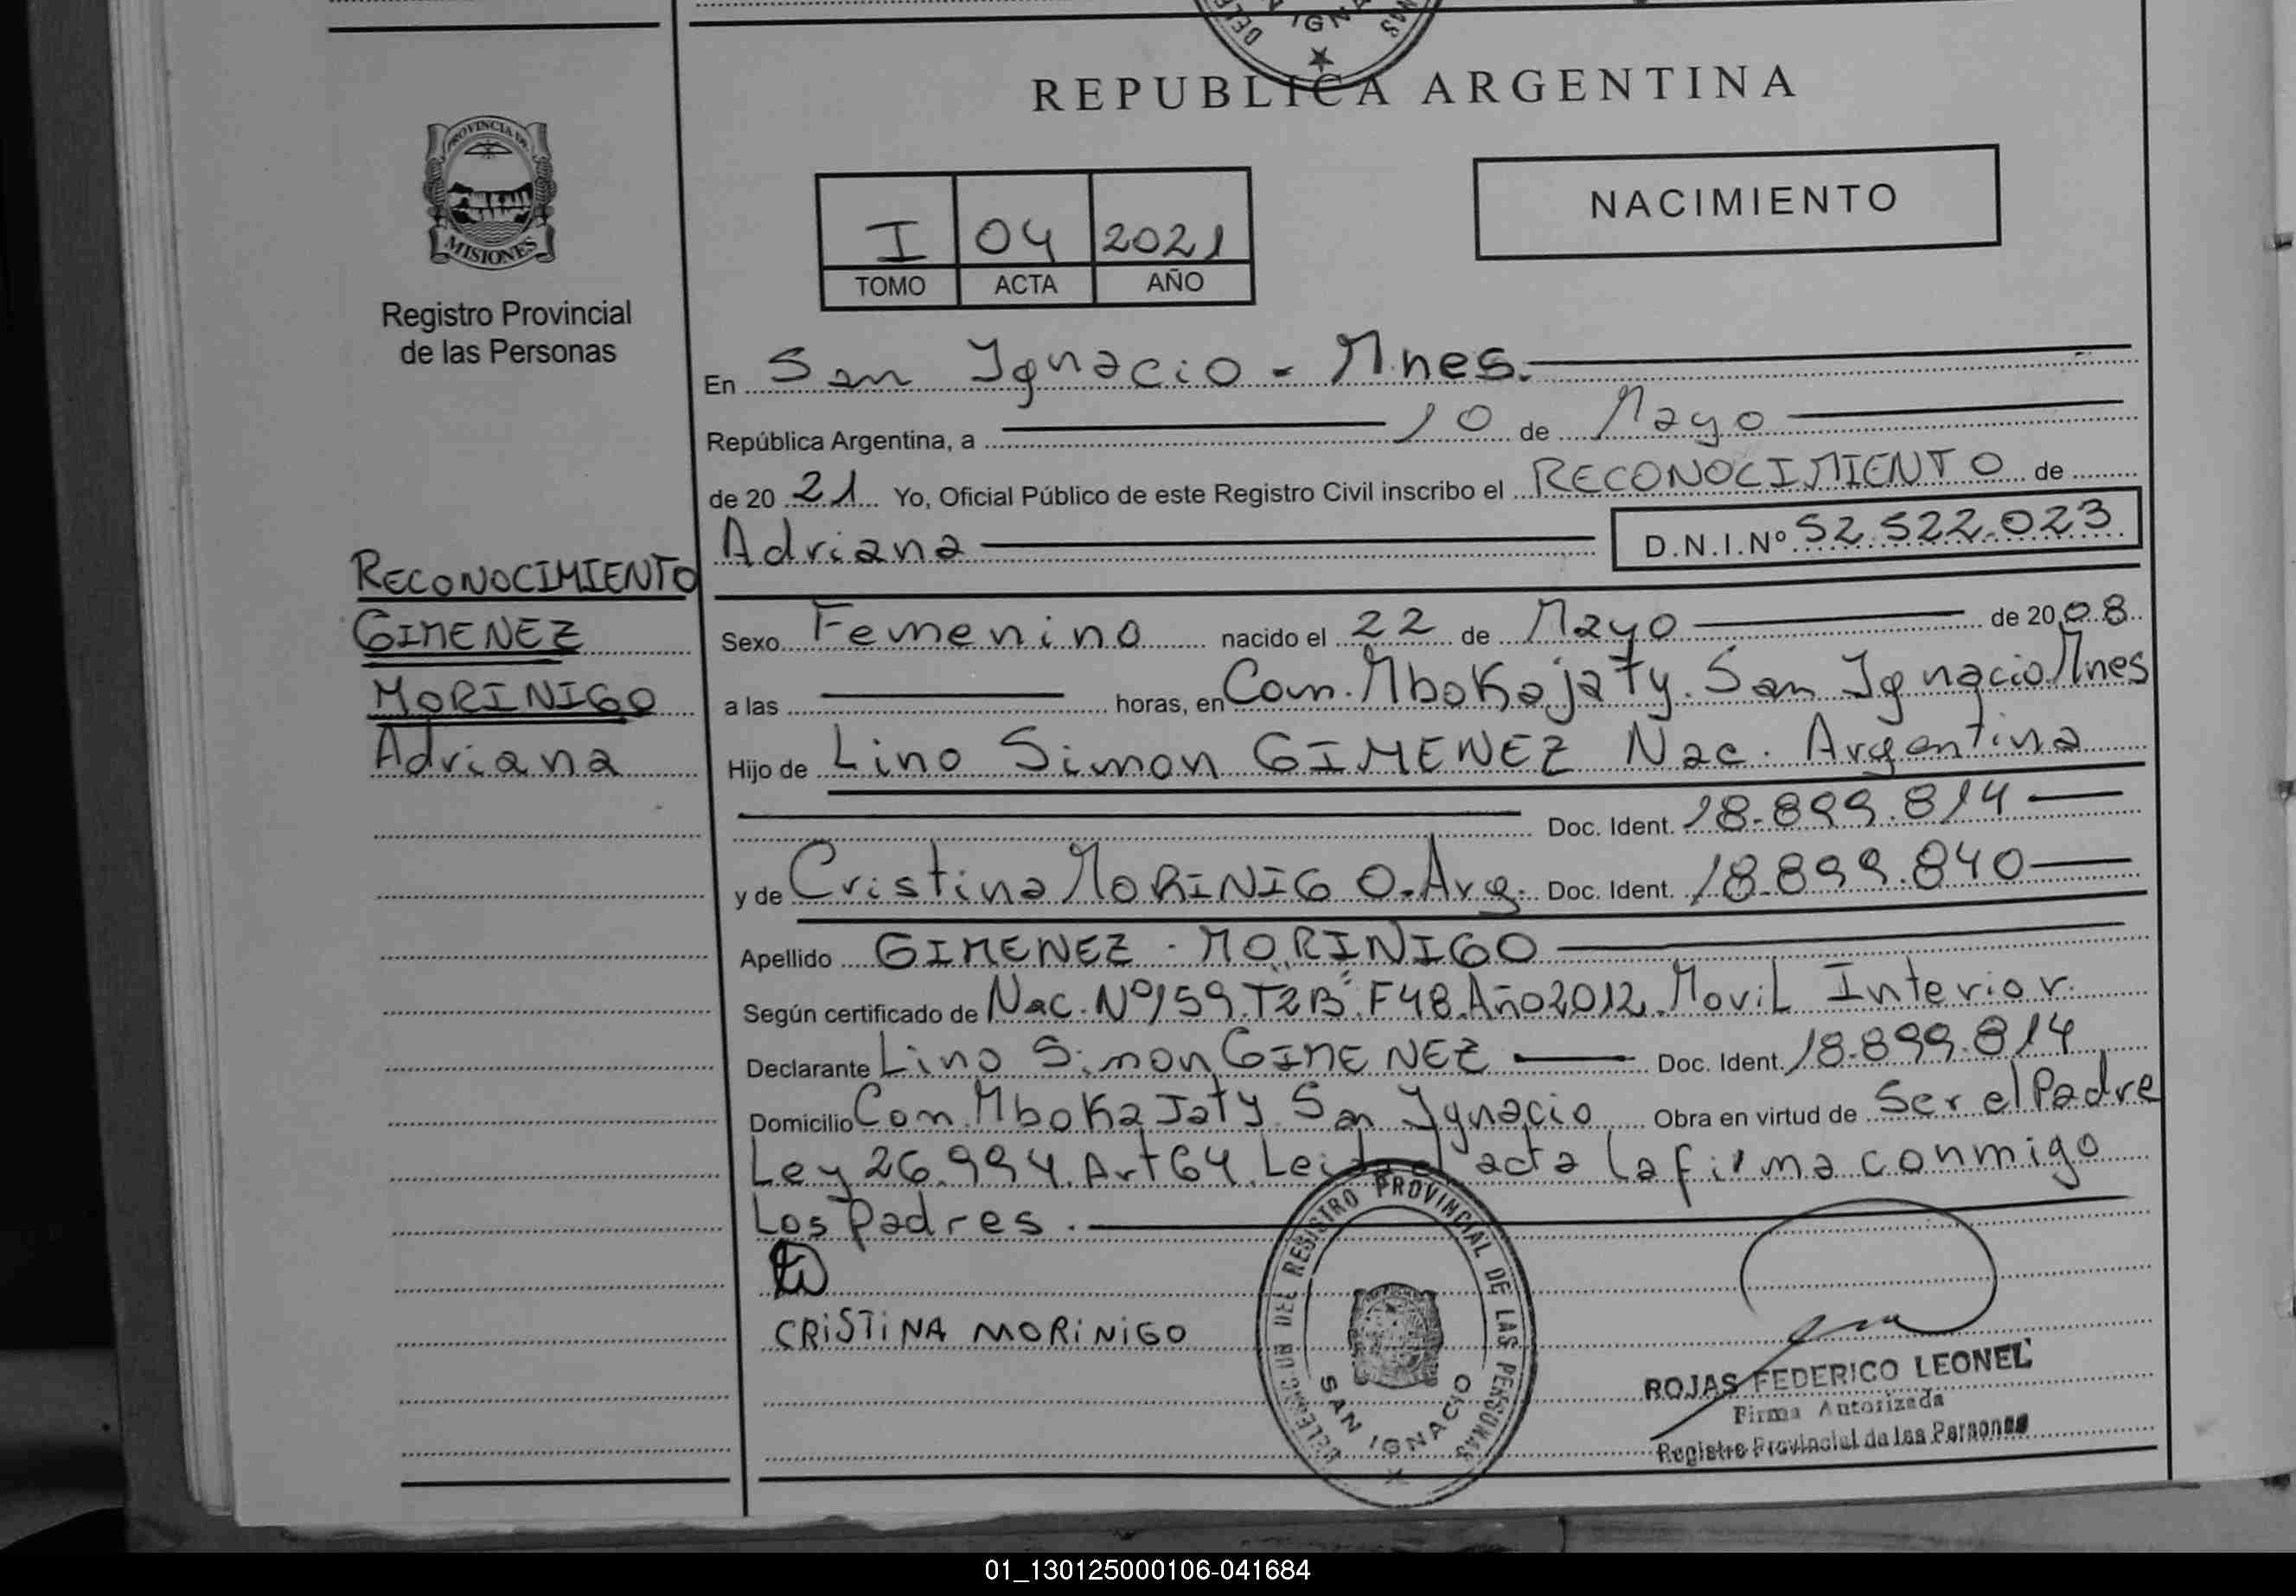 REPUBLICA ARGENTINA
PROVINCIA DE
MISIONES
Registro Provincial
de las Personas
NACIMIENTO
I 04 2021
TOMO ACTA AÑO
En San Ignacio - Mnes.
República Argentina, a 10 de Mayo
de 20 21 Yo, Oficial Público de este Registro Civil inscribo el RECONOCIMIENTO de
Adriana D.N.I.Nº 52.522.023
RECONOCIMIENTO
GIMENEZ
MORINIGO
Adriana
Sexo Femenino nacido el 22 de Mayo de 20 08
a las horas, en Com. Mbokajaty. San Ignacio Mnes
Hijo de Lino Simon GIMENEZ Nac. Argentina
Doc. Ident. 18.899.814
y de Cristina MORINIGO. Arg. Doc. Ident. 18.899.840
Apellido GIMENEZ - MORINIGO
Según certificado de Nac. Nº159. T2"B". F48. Año 2012. Movil Interior.
Declarante Lino Simon GIMENEZ Doc. Ident. 18.899.814
Domicilio Com. Mboka Jaty. San Ygnacio Obra en virtud de Ser el Padre
Ley 26.994. Art 64. Leida el acta la firma conmigo
Los Padres.
CRISTINA MORINIGO
DELEGACION DEL REGISTRO PROVINCIAL DE LAS PERSONAS
SAN IGNACIO
ROJAS FEDERICO LEONEL
Firma Autorizada
Registro Provincial de las Personas
01_130125000106-041684